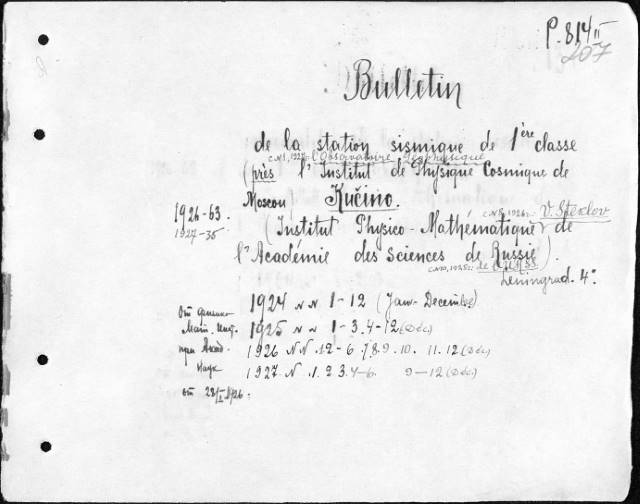 P. 814 II
207
Bulletin
de la station sismique de 1ère classe
c N 1, 1927: l'Observatoire Géophysique
(près l'Institut de Physique Cosmique de
Moscou Kučino.
1926-63.
c N 8, 1926: V. Steklov
1927-35
(Institut Physico-Mathématique de
l'Académie des Sciences de Russie).
de l'URSS
Leningrad. 4°.
1924 N N 1-12 (Janv-Decembre)
от физико-
1925 N N 1-3.4-12 (Déc)
Мат. Инст.
при Акад.
1926 N N 1.2-6.7.8.9.10. 11.12 (Déc)
Наук
1927 N 1.2.3.4-6. 9-12 (Déc)
от 28/I 1926: